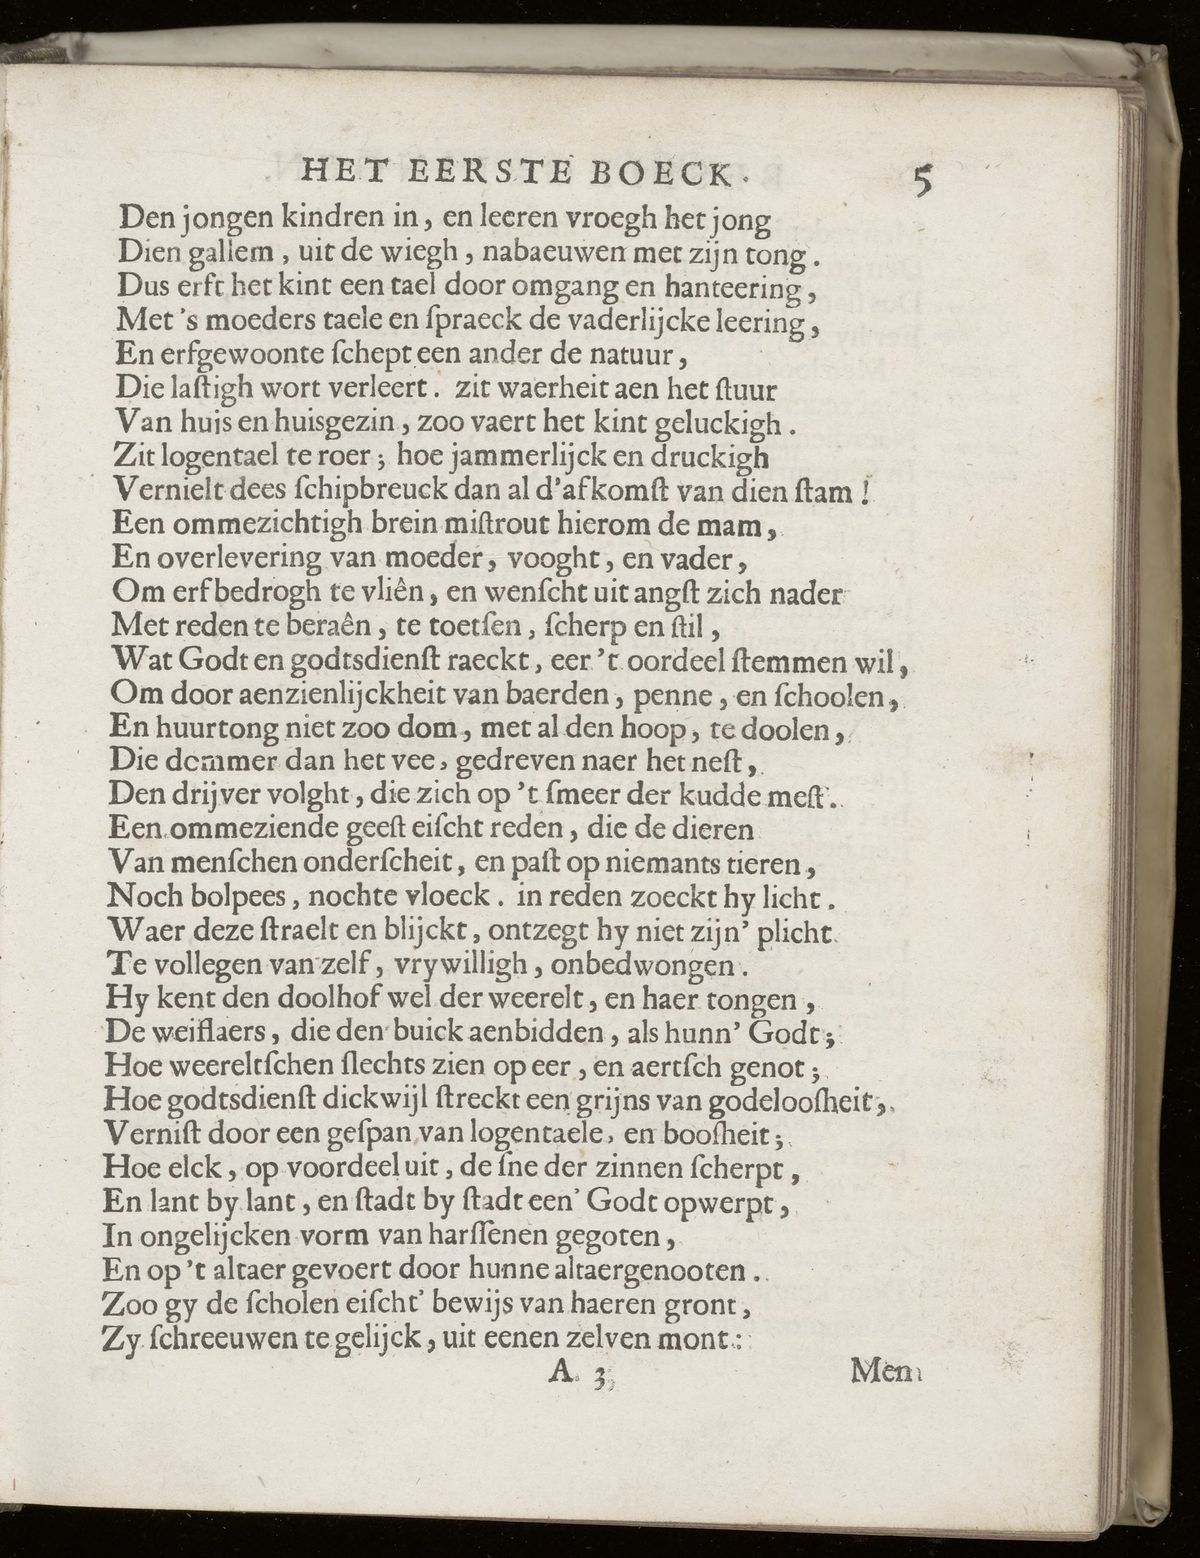 HET EERSTE BOECK. 5
Den jongen kindren in, en leeren vroegh het jong
Dien gallem, uit de wiegh, nabaeuwen met zijn tong.
Dus erft het kint een tael door omgang en hanteering,
Met 's moeders taele en ſpraeck de vaderlijcke leering,
En erfgewoonte ſchept een ander de natuur,
Die laſtigh wort verleert. zit waerheit aen het ſtuur
Van huis en huisgezin, zoo vaert het kint geluckigh.
Zit logentael te roer; hoe jammerlijck en druckigh
Vernielt dees ſchipbreuck dan al d'afkomſt van dien ſtam!
Een ommezichtigh brein miſtrout hierom de mam,
En overlevering van moeder, vooght, en vader,
Om erfbedrogh te vliên, en wenſcht uit angſt zich nader
Met reden te beraên, te toetſen, ſcherp en ſtil,
Wat Godt en godtsdienſt raeckt, eer 't oordeel ſtemmen wil,
Om door aenzienlijckheit van baerden, penne, en ſchoolen,
En huurtong niet zoo dom, met al den hoop, te doolen,
Die dommer dan het vee, gedreven naer het neſt,
Den drijver volght, die zich op 't ſmeer der kudde meſt.
Een ommeziende geeſt eiſcht reden, die de dieren
Van menſchen onderſcheit, en paſt op niemants tieren,
Noch bolpees, nochte vloeck. in reden zoeckt hy licht.
Waer deze ſtraelt en blijckt, ontzegt hy niet zijn' plicht
Te vollegen van zelf, vrywilligh, onbedwongen.
Hy kent den doolhof wel der weerelt, en haer tongen,
De weiflaers, die den buick aenbidden, als hunn' Godt;
Hoe weereltſchen ſlechts zien op eer, en aertſch genot;
Hoe godtsdienſt dickwijl ſtreckt een grijns van godelooſheit,
Verniſt door een geſpan van logentaele, en booſheit;
Hoe elck, op voordeel uit, de ſne der zinnen ſcherpt,
En lant by lant, en ſtadt by ſtadt een' Godt opwerpt,
In ongelijcken vorm van harſſenen gegoten,
En op 't altaer gevoert door hunne altaergenooten.
Zoo gy de ſcholen eiſcht' bewijs van haeren gront,
Zy ſchreeuwen te gelijck, uit eenen zelven mont:
A 3 Men